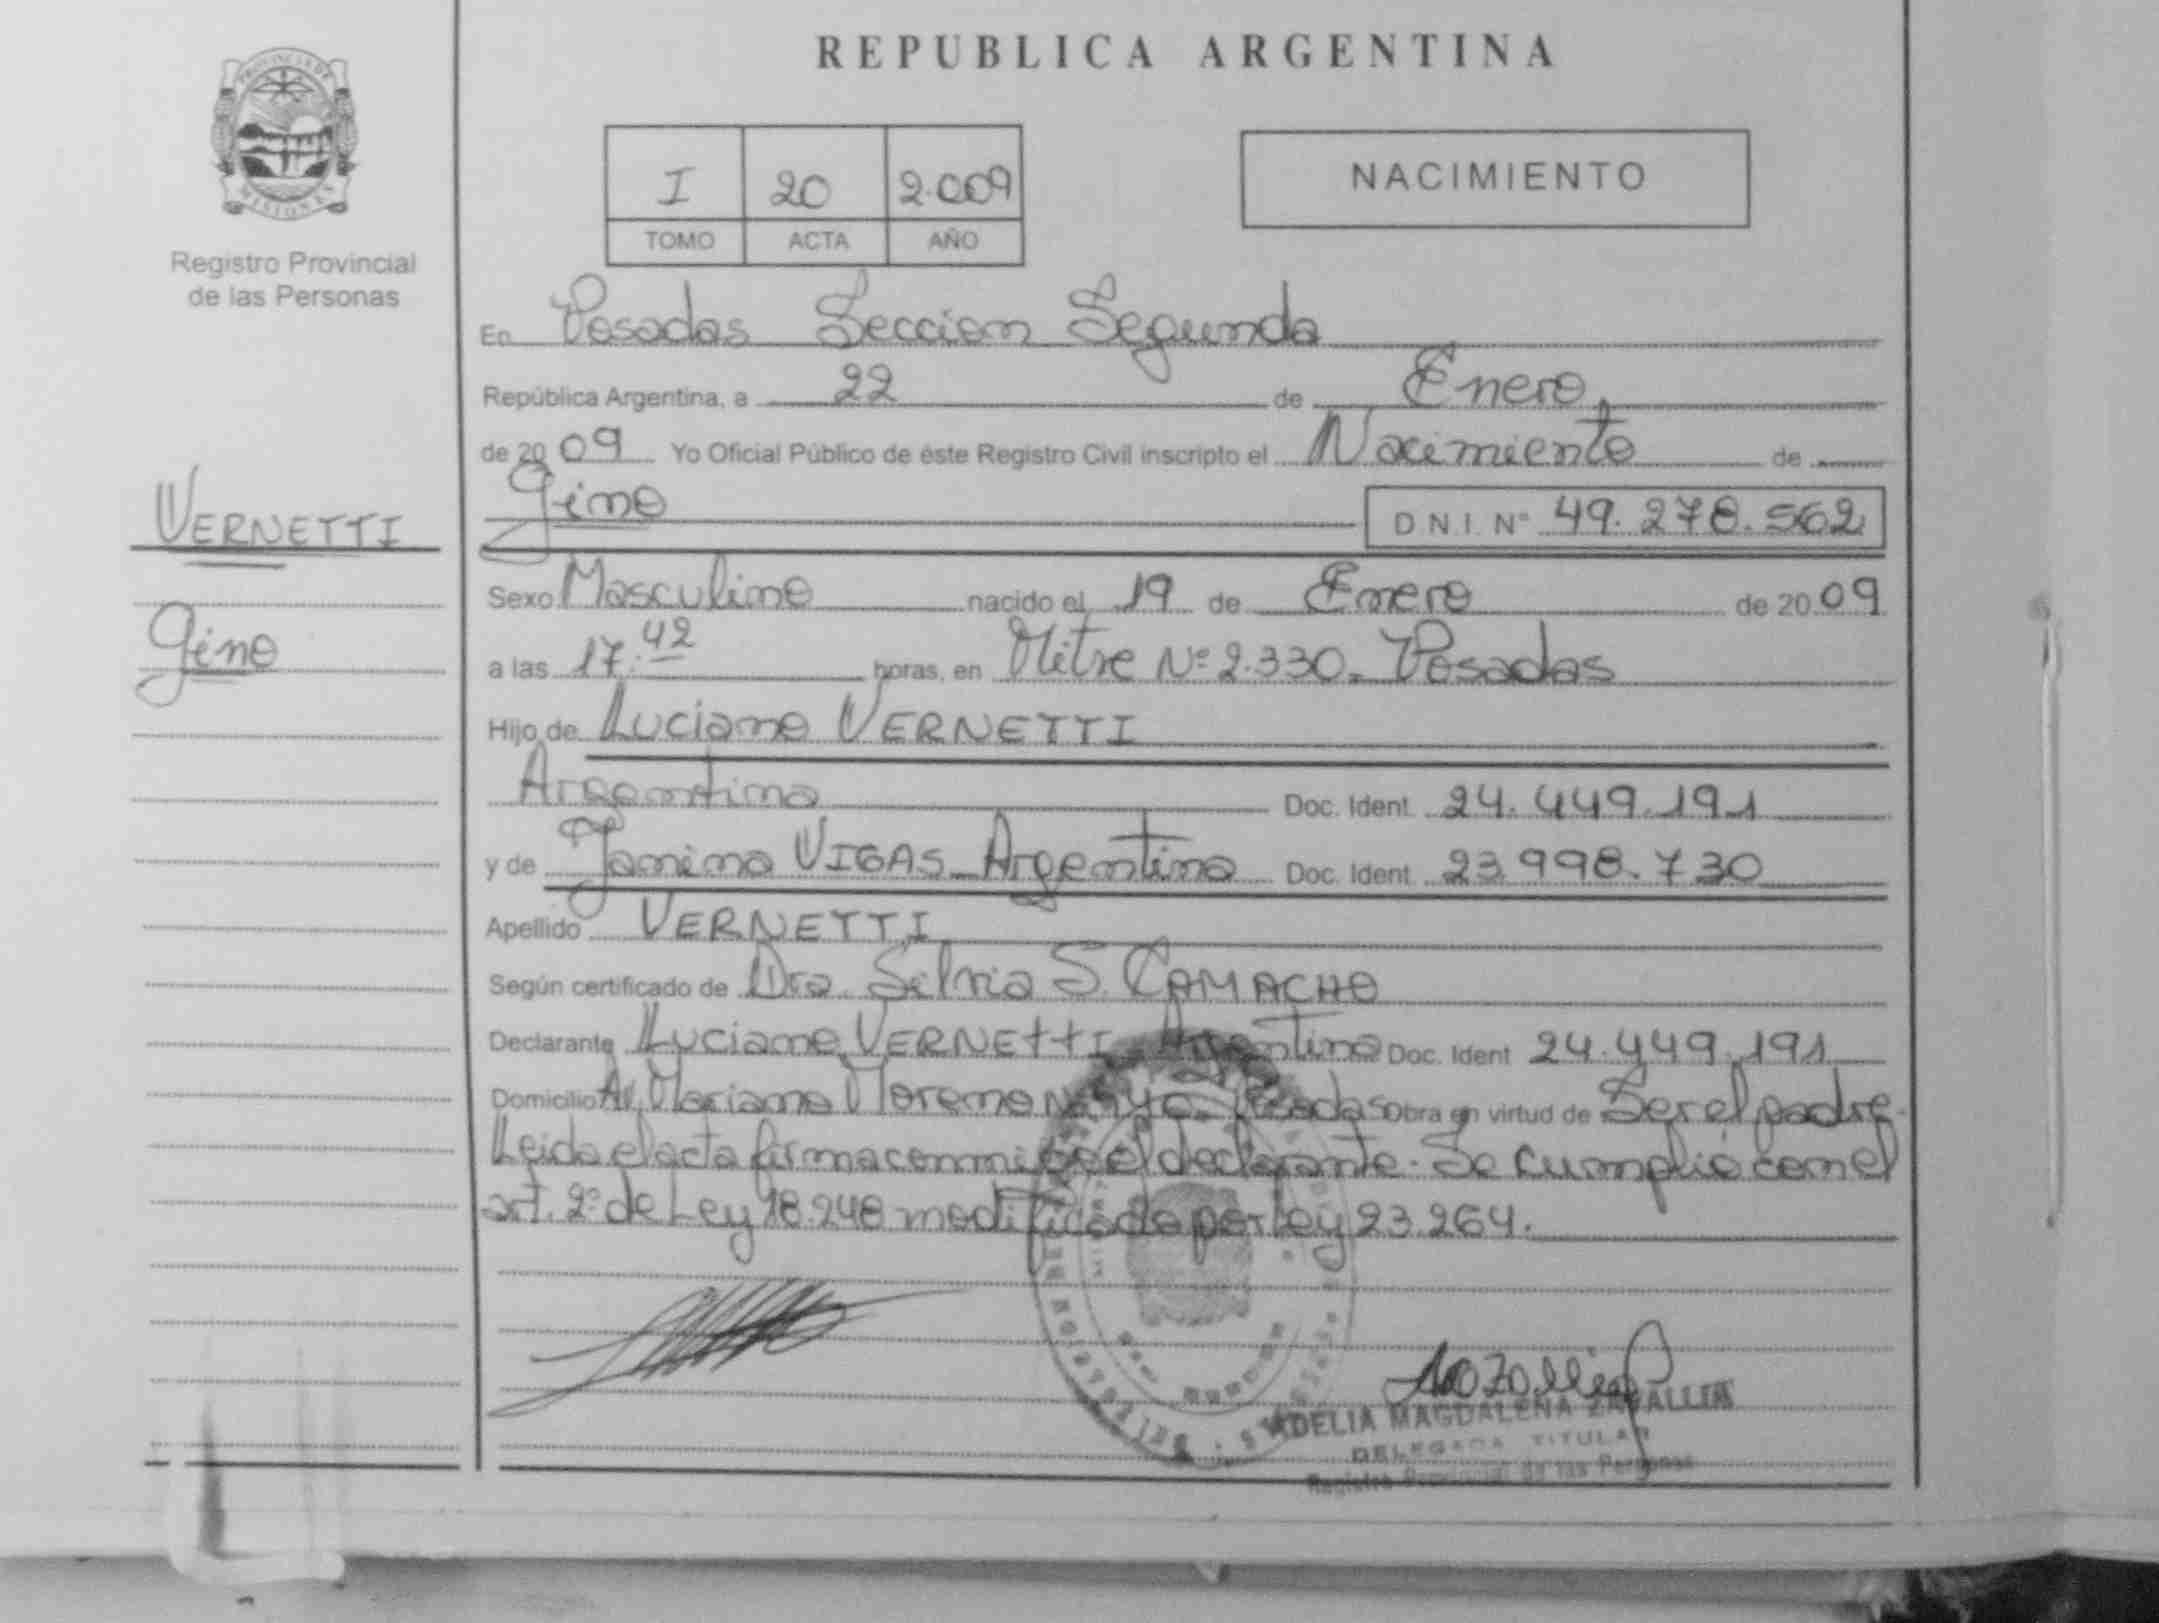 REPUBLICA ARGENTINA
PROVINCIA DE
MISIONES
Registro Provincial
de las Personas
I 20 2.009
TOMO ACTA AÑO
NACIMIENTO
En Posadas Seccion Segunda
República Argentina, a 22 de Enero
de 2009 Yo Oficial Público de éste Registro Civil inscripto el Nacimiento de
VERNETTI
Gino
Gino D.N.I. Nº 49.278.562
Sexo Masculino nacido el 19 de Enero de 2009
a las 17:42 horas, en Mitre Nº 2.330. Posadas
Hijo de Luciano VERNETTI
Argentino Doc. Ident. 24.449.191
y de Janina VIGAS Argentina Doc. Ident. 23.998.730
Apellido VERNETTI
Según certificado de Dra. Silvia S. CAMACHO
Declarante Luciano VERNEttI Argentino Doc. Ident 24.449.191
Domicilio Av. Mariano Moreno Posadas obra en virtud de Ser el padre.
Leida el acta firma conmigo el declarante. Se cumplió con el
art. 2º de Ley 18.248 modificada por ley 23.264.
ADELIA MAGDALENA ZARALLIA
DELEGADA TITULAR
Registro Provincial de las Personas